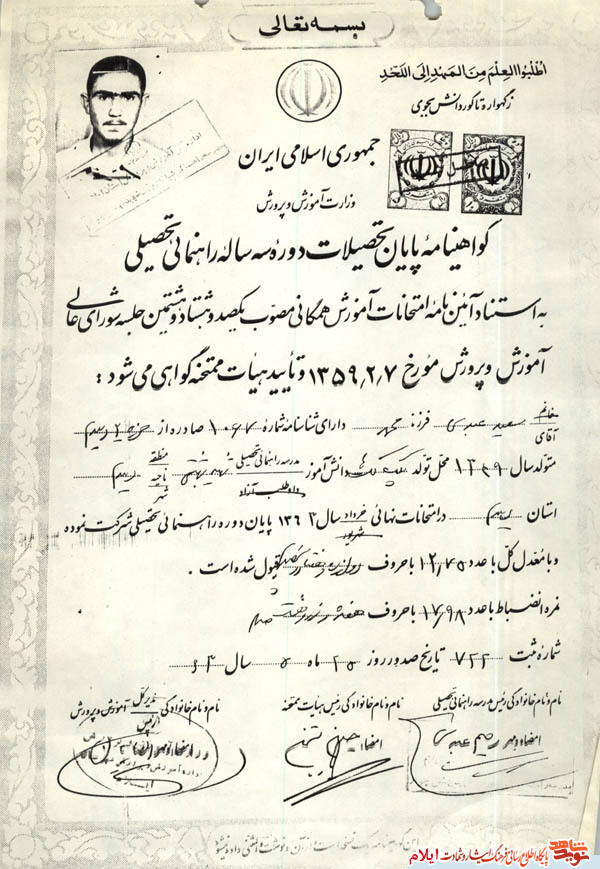 بسمه تعالی
اطلبوا العلم من المهد الی اللحد
ز گهواره تا گور دانش بجوی
جمهوری اسلامی ایران
وزارت آموزش و پرورش
گواهینامهٔ پایان تحصیلات دورهٔ سه سالهٔ راهنمائی تحصیلی
به استناد آئین نامهٔ امتحانات آموزش همگانی مصوب یکصد و هشتاد و هشتمین جلسه شورای عالی
آموزش و پرورش مورخ ۱۳۵۹٫۲٫۷ و تأیید هیأت ممتحنه گواهی می شود :
خانم
آقای سعید عبدی فرزند دارای شناسنامه شمارهٔ ۱۰۶۷ صادره از
متولد سال ۱۳۴۹ محل تولد دانش آموز مدرسه راهنمائی تحصیلی منطقه
داوطلب آزاد ناحیه
شهر
استان در امتحانات نهائی خرداد سال ۱۳۶۳ پایان دوره راهنمائی تحصیلی شرکت نموده
شهریور
و با معدل کل با عدد ۱۲٫۷۵ با حروف دوازده و هفتاد و پنج صدم قبول شده است .
نمره انضباط با عدد ۱۷٫۹۸ با حروف هفده و نود و هشت صدم
شمارهٔ ثبت ۷۲۲ تاریخ صدور روز ۲۵ ماه ۵ سال ۶۳
نام و نام خانوادگی رئیس مدرسه راهنمائی تحصیلی
نام و نام خانوادگی رئیس هیأت ممتحنه
نام و نام خانوادگی مدیر کل آموزش و پرورش
رئیس
امضاء و مهر
امضاء
نوید شاهد
پایگاه اطلاع رسانی فرهنگ ایثار و شهادت ایلام